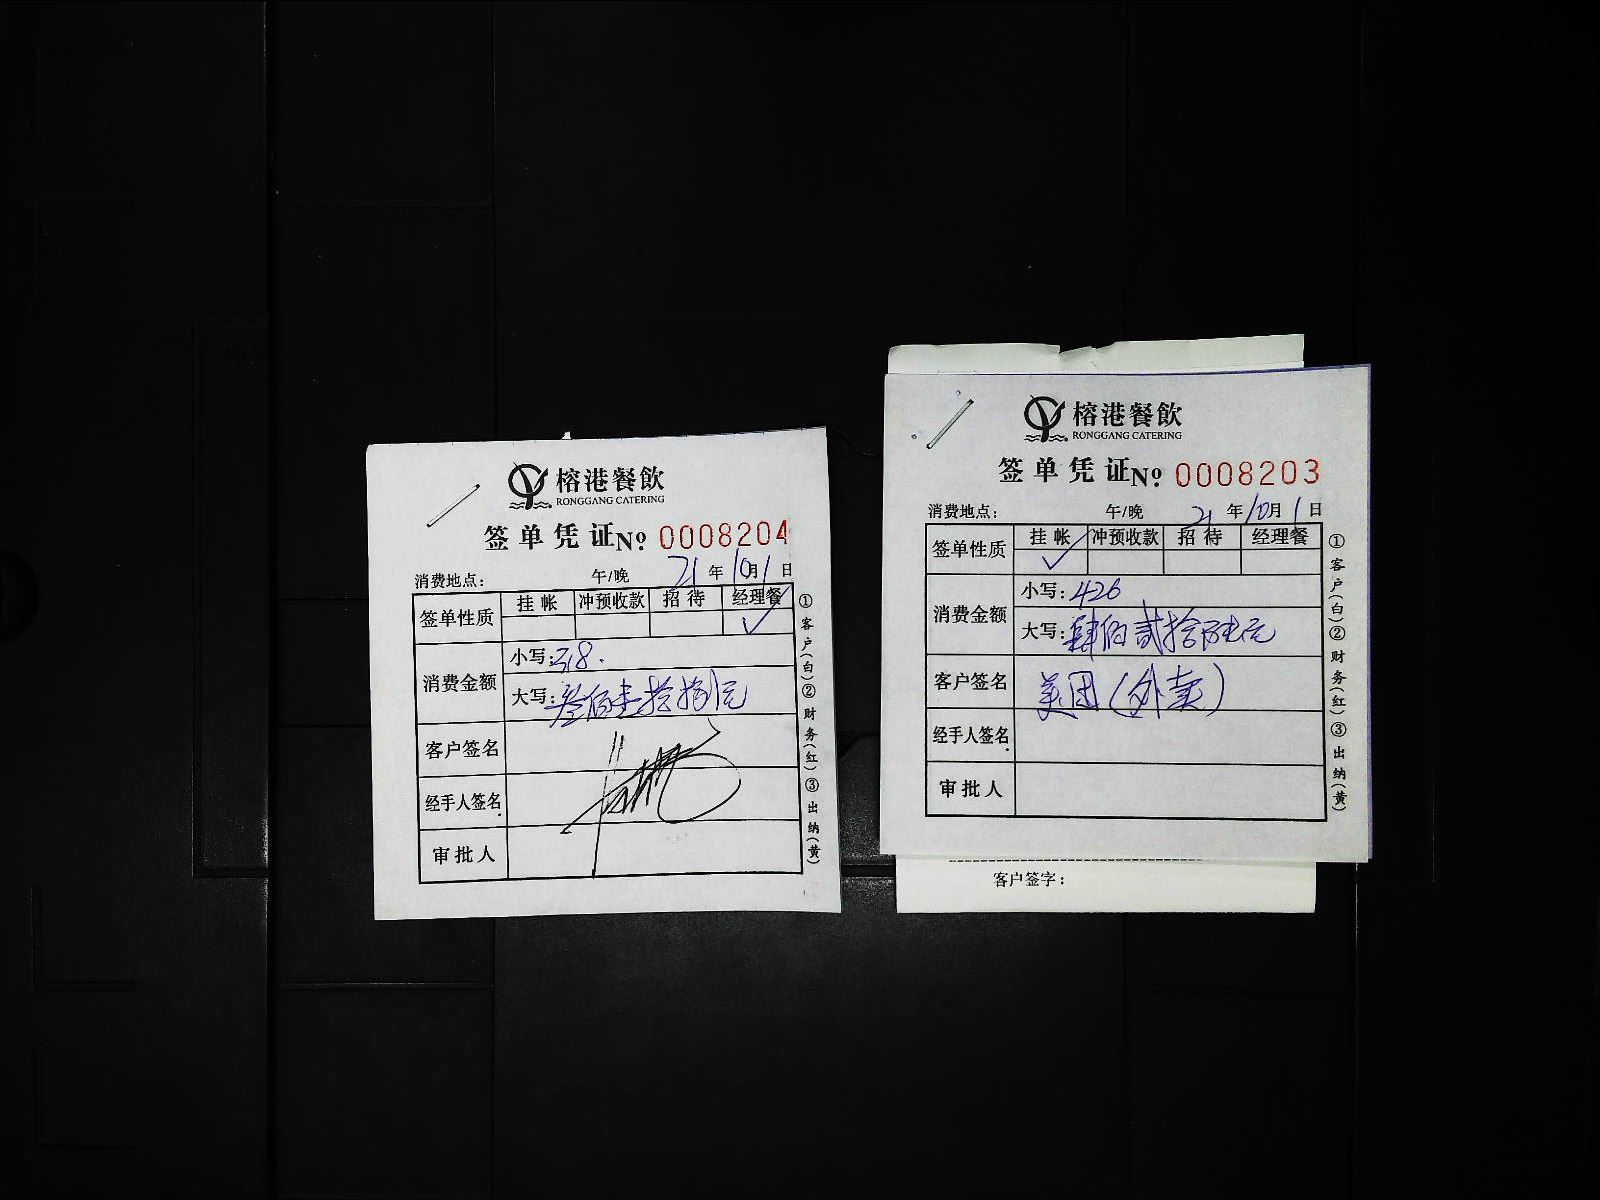 榕港餐飲
RONGGANG CATERING
签单凭证 № 0008204
消费地点： 午/晚 21 年 10 月 1 日
签单性质 挂帐 冲预收款 招待 经理餐
✓
消费金额 小写：318.
大写：叁佰壹拾捌元
客户签名
经手人签名
审批人
①客户(白)②财务(红)③出纳(黄)
榕港餐飲
RONGGANG CATERING
签单凭证 № 0008203
消费地点： 午/晚 21 年 10 月 1 日
签单性质 挂帐 冲预收款 招待 经理餐
✓
消费金额 小写：426
大写：肆佰贰拾陆元
客户签名 美团（外卖）
经手人签名
审批人
①客户(白)②财务(红)③出纳(黄)
客户签字：